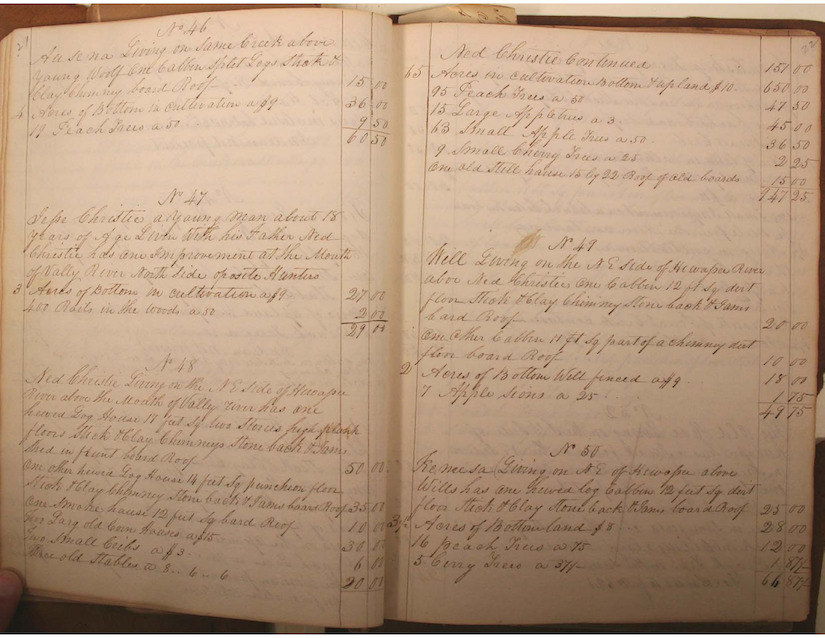 No 46
Living on Same Creek above
Young Woolf One Cabbin Split Logs Stick &
Clay Chimny board Roof 15 00
4 Acres of Bottom in cultivation a $9 36 00
19 Peach Trees a 50 9 50
60 50
No 47
Jesse Christie a Young Man about 18
years of Age Liven With his Father Ned
Christie has One Improvement at the Mouth
of Vally River North Side oposite Hunters
3 Acres of Bottom in cultivation a $9 27 00
400 Rails in the woods a 50 2 00
29 00
No 48
Ned Christie Living on the N E Side of Hewapee
River above the Mouth of Valley River has one
hewed Log House 17 feet Sq two Stories high plank
floors Stick & Clay Chimneys Stone back & Jams
Shed in frunt board Roof 50 00
One other hewed Log House 14 feet Sq puncheon floor
Stick & Clay Chimney Stone Back & Jams board Roof 35 00
One Smoke house 12 feet Sq bard Roof 10 00
Two Larg old Corn Houses a $15 30 00
Two Small Cribs a $3 6 00
Three old Stables a 8 - 6 - 6 20 00
Ned Christie Continued 151 00
65 Acres in cultivation Bottom & upland $10 650 00
95 Peach Trees a 50 47 50
15 Large Appletrees a 3 45 00
63 Small Apple Trees a 50 36 50
9 Small Cherry Trees a 25 2 25
One old Still house 15 by 22 Roof of old boards 15 00
947 25
No 49
Will Living on the N E Side of Hewapee River
abov Ned Christies One Cabbin 12 ft Sq dirt
floor Stick & Clay Chimmy Stone back & Jams
bard Roof 20 00
One Other Cabbin 11 ft Sq part of a chimney dirt
floor board Roof 10 00
2 Acres of Bottom Well fenced a $9 18 00
7 Apple Sions a 25 1 75
49 75
No 50
Living on N E of Hewapee above
Wills has one hewed Log Cabben 12 feet Sq dirt
floor Stick & Clay Stone back & Jams board Roof 25 00
3½ Acres of Bottom land $8 28 00
16 peach Trees a 75 12 00
5 Cerry Trees a 37½ 1 87½
66 87½